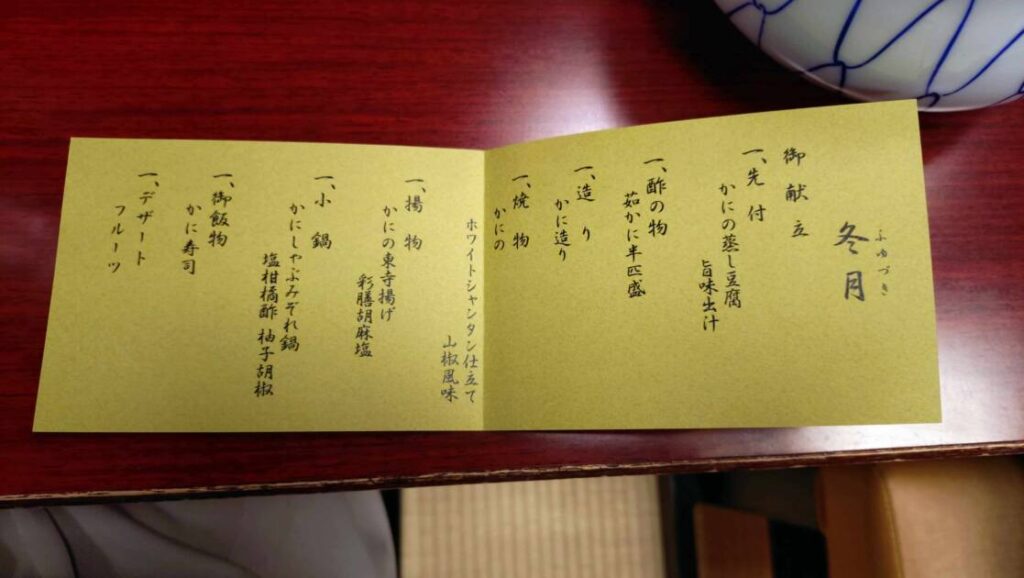 冬月
ふゆづき
御献立
一、先付
かにの蒸し豆腐
旨味出汁
一、酢の物
茹かに半匹盛
一、造り
かに造り
一、焼物
かにの
ホワイトシャンタン仕立て
山椒風味
一、揚物
かにの東寺揚げ
彩膳胡麻塩
一、小鍋
かにしゃぶみぞれ鍋
塩柑橘酢 柚子胡椒
一、御飯物
かに寿司
一、デザート
フルーツ